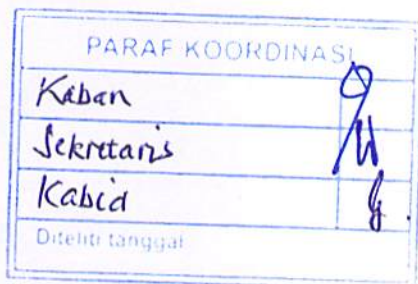 PARAF KOORDINASI
Kaban
Sekretaris
Kabid
Diteliti tanggal